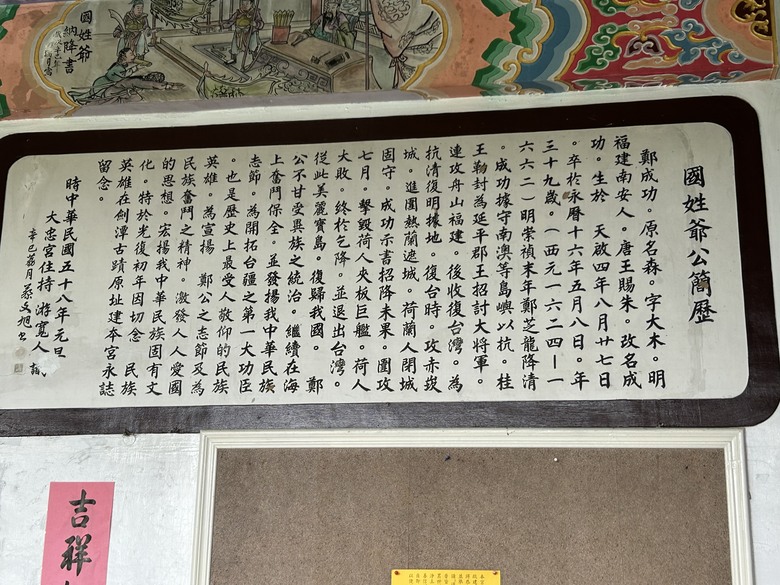 國姓爺
納降書
國姓爺公簡歷
鄭成功。原名森。字大木。明
福建南安人。唐王賜朱。改名成
功。生於 天啟四年八月廿七日
。卒於永曆十六年五月八日。年
三十九歲。(西元一六二四—一
六六二)明崇禎末年鄭芝龍降清
。成功據守南澳等島嶼以抗。桂
王勅封為延平郡王招討大將軍。
連攻舟山福建。後收復台灣。為
抗清復明據地。復台時。攻赤崁
城。進圍熱蘭遮城。荷蘭人閉城
固守。成功示書招降未果。圍攻
七月。擊毀荷人夾板巨艦。荷人
大敗。終於乞降。並退出台灣。
從此美麗寶島。復歸我國。 鄭
公不甘受異族之統治。繼續在海
上奮鬥保全。並發揚我中華民族
志節。為開拓台疆之第一大功臣
。也是歷史上最受人敬仰的民族
英雄。為宣揚 鄭公之志節及為
民族奮鬥之精神。激發人人愛國
的思想。宏揚我中華民族固有文
化。特於光復初年因切念 民族
英雄在劍潭古蹟原址建本宮永誌
留念。
時中華民國五十八年元旦
大忠宮住持 游寬人 誠
辛巳荔月 蔡文旭 书
吉祥